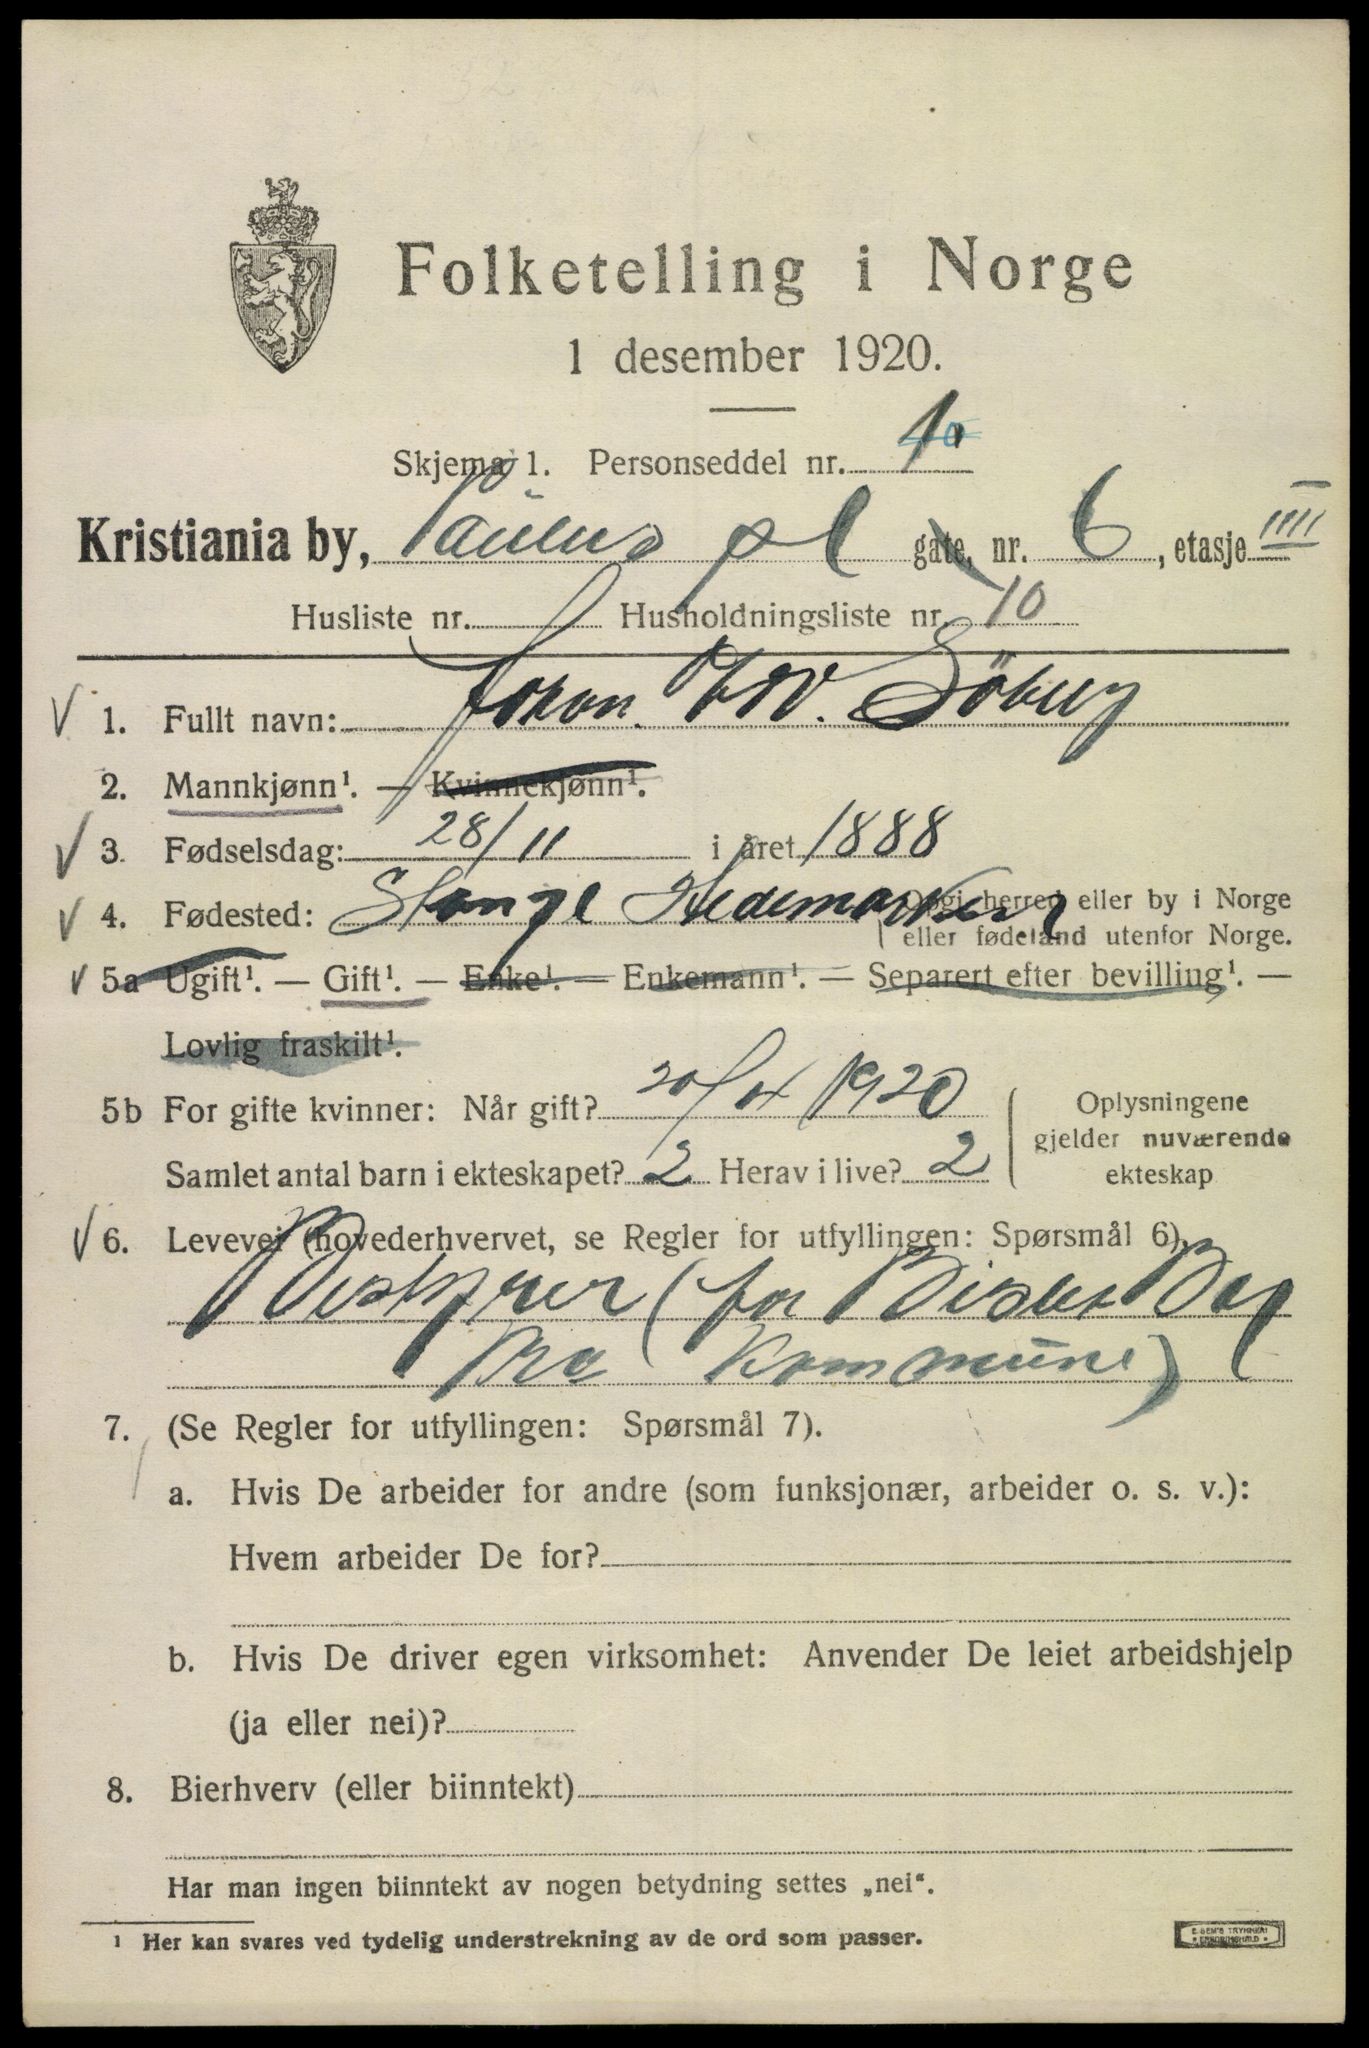 Folketelling i Norge
1 desember 1920.
Skjema 1. Personseddel nr. 1
Kristiania by, Paulus pl gate, nr. 6, etasje IIII
Husliste nr. Husholdningsliste nr. 10
1. Fullt navn: Johan Söberg
2. Mannkjønn¹. — Kvinnekjønn¹.
3. Fødselsdag: 28/11 i året 1888
4. Fødested: Stange Hedemarken Opgi herred eller by i Norge
eller fødeland utenfor Norge.
5a Ugift¹. — Gift¹. — Enke¹. — Enkemann¹. — Separert efter bevilling¹. —
Lovlig fraskilt¹.
5b For gifte kvinner: Når gift? 1920
Samlet antal barn i ekteskapet? 2 Herav i live? 2
Oplysningene
gjelder nuværende
ekteskap
6. Levevei (hovederhvervet, se Regler for utfyllingen: Spørsmål 6).
(for Bislet Bad
Kra Kommune)
7. (Se Regler for utfyllingen: Spørsmål 7).
a. Hvis De arbeider for andre (som funksjonær, arbeider o. s. v.):
Hvem arbeider De for?
b. Hvis De driver egen virksomhet: Anvender De leiet arbeidshjelp
(ja eller nei)?
8. Bierhverv (eller biinntekt)
Har man ingen biinntekt av nogen betydning settes „nei".
¹ Her kan svares ved tydelig understrekning av de ord som passer.